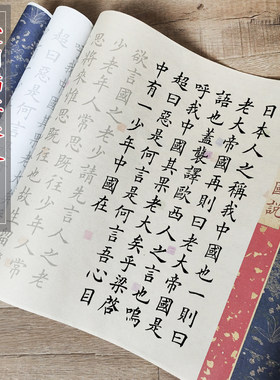 日本人之稱我中國也一則曰
老大帝國再則曰老大帝國是
語也蓋襲譯歐西人之言也嗚
呼我中國其果老大矣乎梁啓
超曰惡是何言是何言吾心目
中有一少年中國在
欲言國之老少請先言人之老
少老年人常思既往少年人常
思將來惟思既
國說